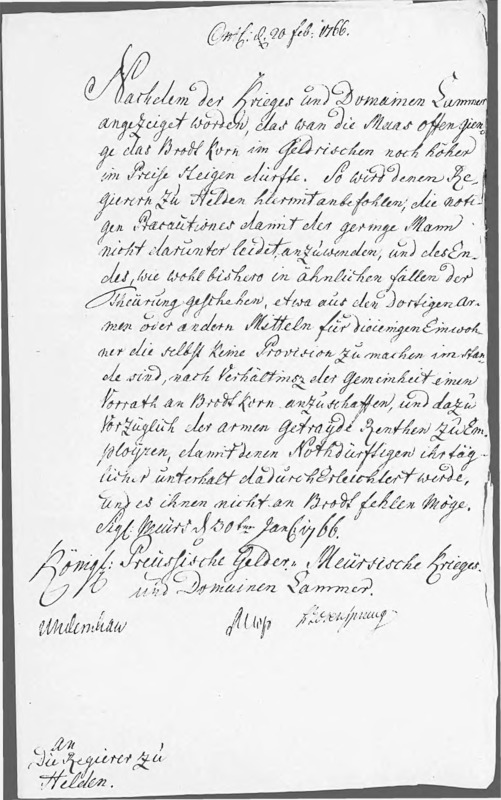 d: 20 feb: 1766.
Nachdem der Krieges und Domainen Cammer
angezeiget worden, das wan die Maas offen gien-
ge das Brodt Korn im Geldrischen noch höher
im Preise steigen dürfte. So wird denen Re-
gierern zu Helden hiermit anbefohlen, die nöti-
gen Præcautiones damit der geringe Mann
nicht darunter leidet, anzuwenden, und des En-
des, wie wohl bishero in ähnlichen fällen der
Theürung geschehen, etwa aus den dortigen Ar-
men oder andern Mitteln für diejenigen Einwoh-
ner die selbst keine Provision zu machen im stan-
de sind, nach Verhältnisz der Gemeinheit einen
Vorrath an Brodt Korn anzuschaffen, und dazu
Vorzüglich der armen Getrayde Renthen zu Em-
ployren, damit denen Nothdürftigen ihr täg-
licher unterhalt dadurch Erleichtert werde,
und es ihnen nicht an Brodt fehlen möge.
Sigl: Meürs d 30ten Jan 1766.
Königl: Preüssische Gelder: Meürsische Krieges-
und Domainen Cammer.
an
Die Regierer zu
Helden.